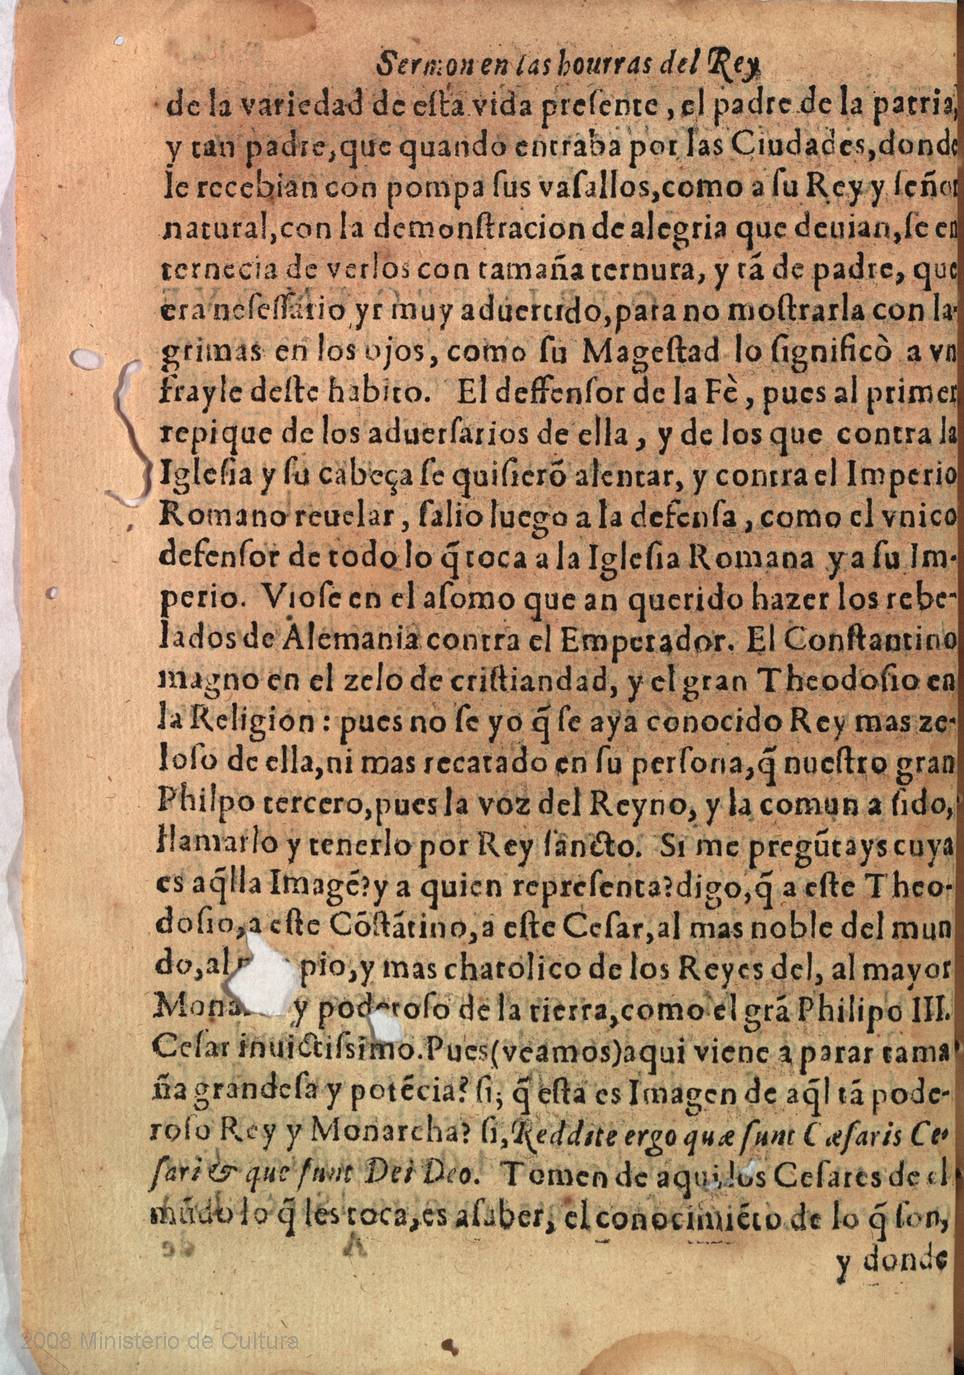 Sermon en las hourras del Rey
de la variedad de eſta vida preſente, el padre de la patria,
y tan padre, que quando entraba por las Ciudades, donde
le recebian con pompa ſus vaſallos, como a ſu Rey y ſeñor
natural, con la demonſtracion de alegria que deuian, ſe en
ternecia de verlos con tamaña ternura, y tã de padre, que
era neſeſſario yr muy aduertrdo, para no moſtrarla con la-
grimas en los ojos, como ſu Mageſtad lo ſignificò a vn
frayle deſte habito. El deffenſor de la Fè, pues al primer
repique de los aduerſarios de ella, y de los que contra la
Igleſia y ſu cabeça ſe quiſierõ alentar, y contra el Imperio
Romano reuelar, ſalio luego a la defenſa, como el vnico
defenſor de todo lo q̃ toca a la Igleſia Romana y a ſu Im-
perio. Vioſe en el aſomo que an querido hazer los rebe-
lados de Alemania contra el Emperador. El Conſtantino
magno en el zelo de criſtiandad, y el gran Theodoſio en
la Religion: pues no ſe yo q̃ ſe aya conocido Rey mas ze-
loſo de ella, ni mas recatado en ſu perſona, q̃ nueſtro gran
Philpo tercero, pues la voz del Reyno, y la comun a ſido,
llamarlo y tenerlo por Rey ſancto. Si me pregũtays cuya
es aq̃lla Imagẽ? y a quien repreſenta? digo, q̃ a eſte Theo-
doſio, a eſte Cõſtãtino, a eſte Ceſar, al mas noble del mun
do, al pio, y mas chatolico de los Reyes del, al mayor
y poderoſo de la tierra, como el grã Philipo III.
Ceſar inuictiſsimo. Pues (veamos) aqui viene a parar tama
ña grandeſa y potẽcia? ſi, q̃ eſta es Imagen de aq̃l tã pode-
roſo Rey y Monarcha? ſi, Reddite ergo quæ ſunt Cæſaris Ce-
ſari & que ſunt Dei Deo. Tomen de aqui los Ceſares de el
mũdo lo q̃ les toca, es aſaber, el conocimiẽto de lo q̃ ſon,
y donde
2008 Ministerio de Cultura